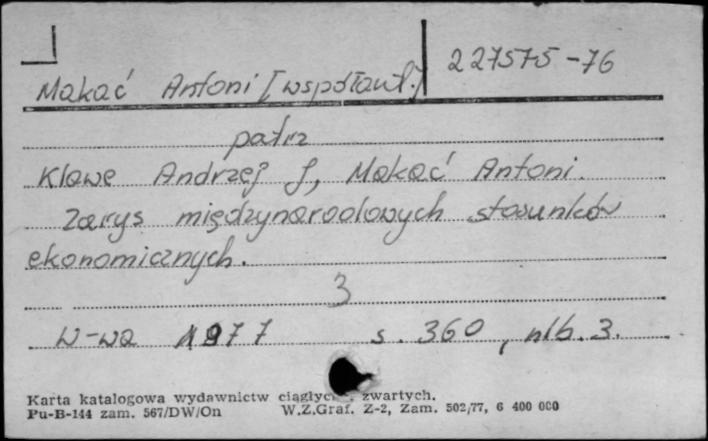 227575-76
Makać Antoni [współaut.]
patrz
Klawe Andrzej J., Makać Antoni.
Zarys międzynarodowych stosunków
ekonomicznych.
3
W-wa 1977 s. 360, nlb. 3.
Karta katalogowa wydawnictw ciągłych - zwartych.
Pu-B-144 zam. 567/DW/On W.Z.Graf. Z-2, Zam. 502/77, 6 400 000